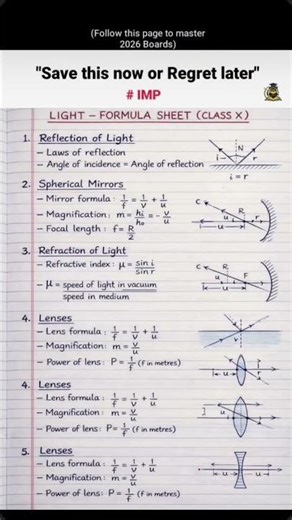 (Follow this page to master
2026 Boards)
"Save this now or Regret later"
# IMP
LIGHT – FORMULA SHEET (CLASS X)
1. Reflection of Light
– Laws of reflection
– Angle of incidence = Angle of reflection
i N r
i = r
2. Spherical Mirrors
– Mirror formula: 1/f = 1/v + 1/u
– Magnification: m = hi/ho = - v/u
– Focal length: f = R/2
C R u r
u
3. Refraction of Light
– Refractive index: μ = sin i/sin r
– μ = speed of light in vacuum
speed in medium
C R u F
u
4. Lenses
– Lens formula: 1/f = 1/v + 1/u
– Magnification: m = v/u
– Power of lens: P = 1/f (f in metres)
u r
4. Lenses
– Lens formula: 1/f = 1/v + 1/u
– Magnification: m = v/u
– Power of lens: P = 1/f (f in metres)
u
5. Lenses
– Lens formula: 1/f = 1/v + 1/u
– Magnification: m = v/u
– Power of lens: P = 1/f (f in metres)
u u